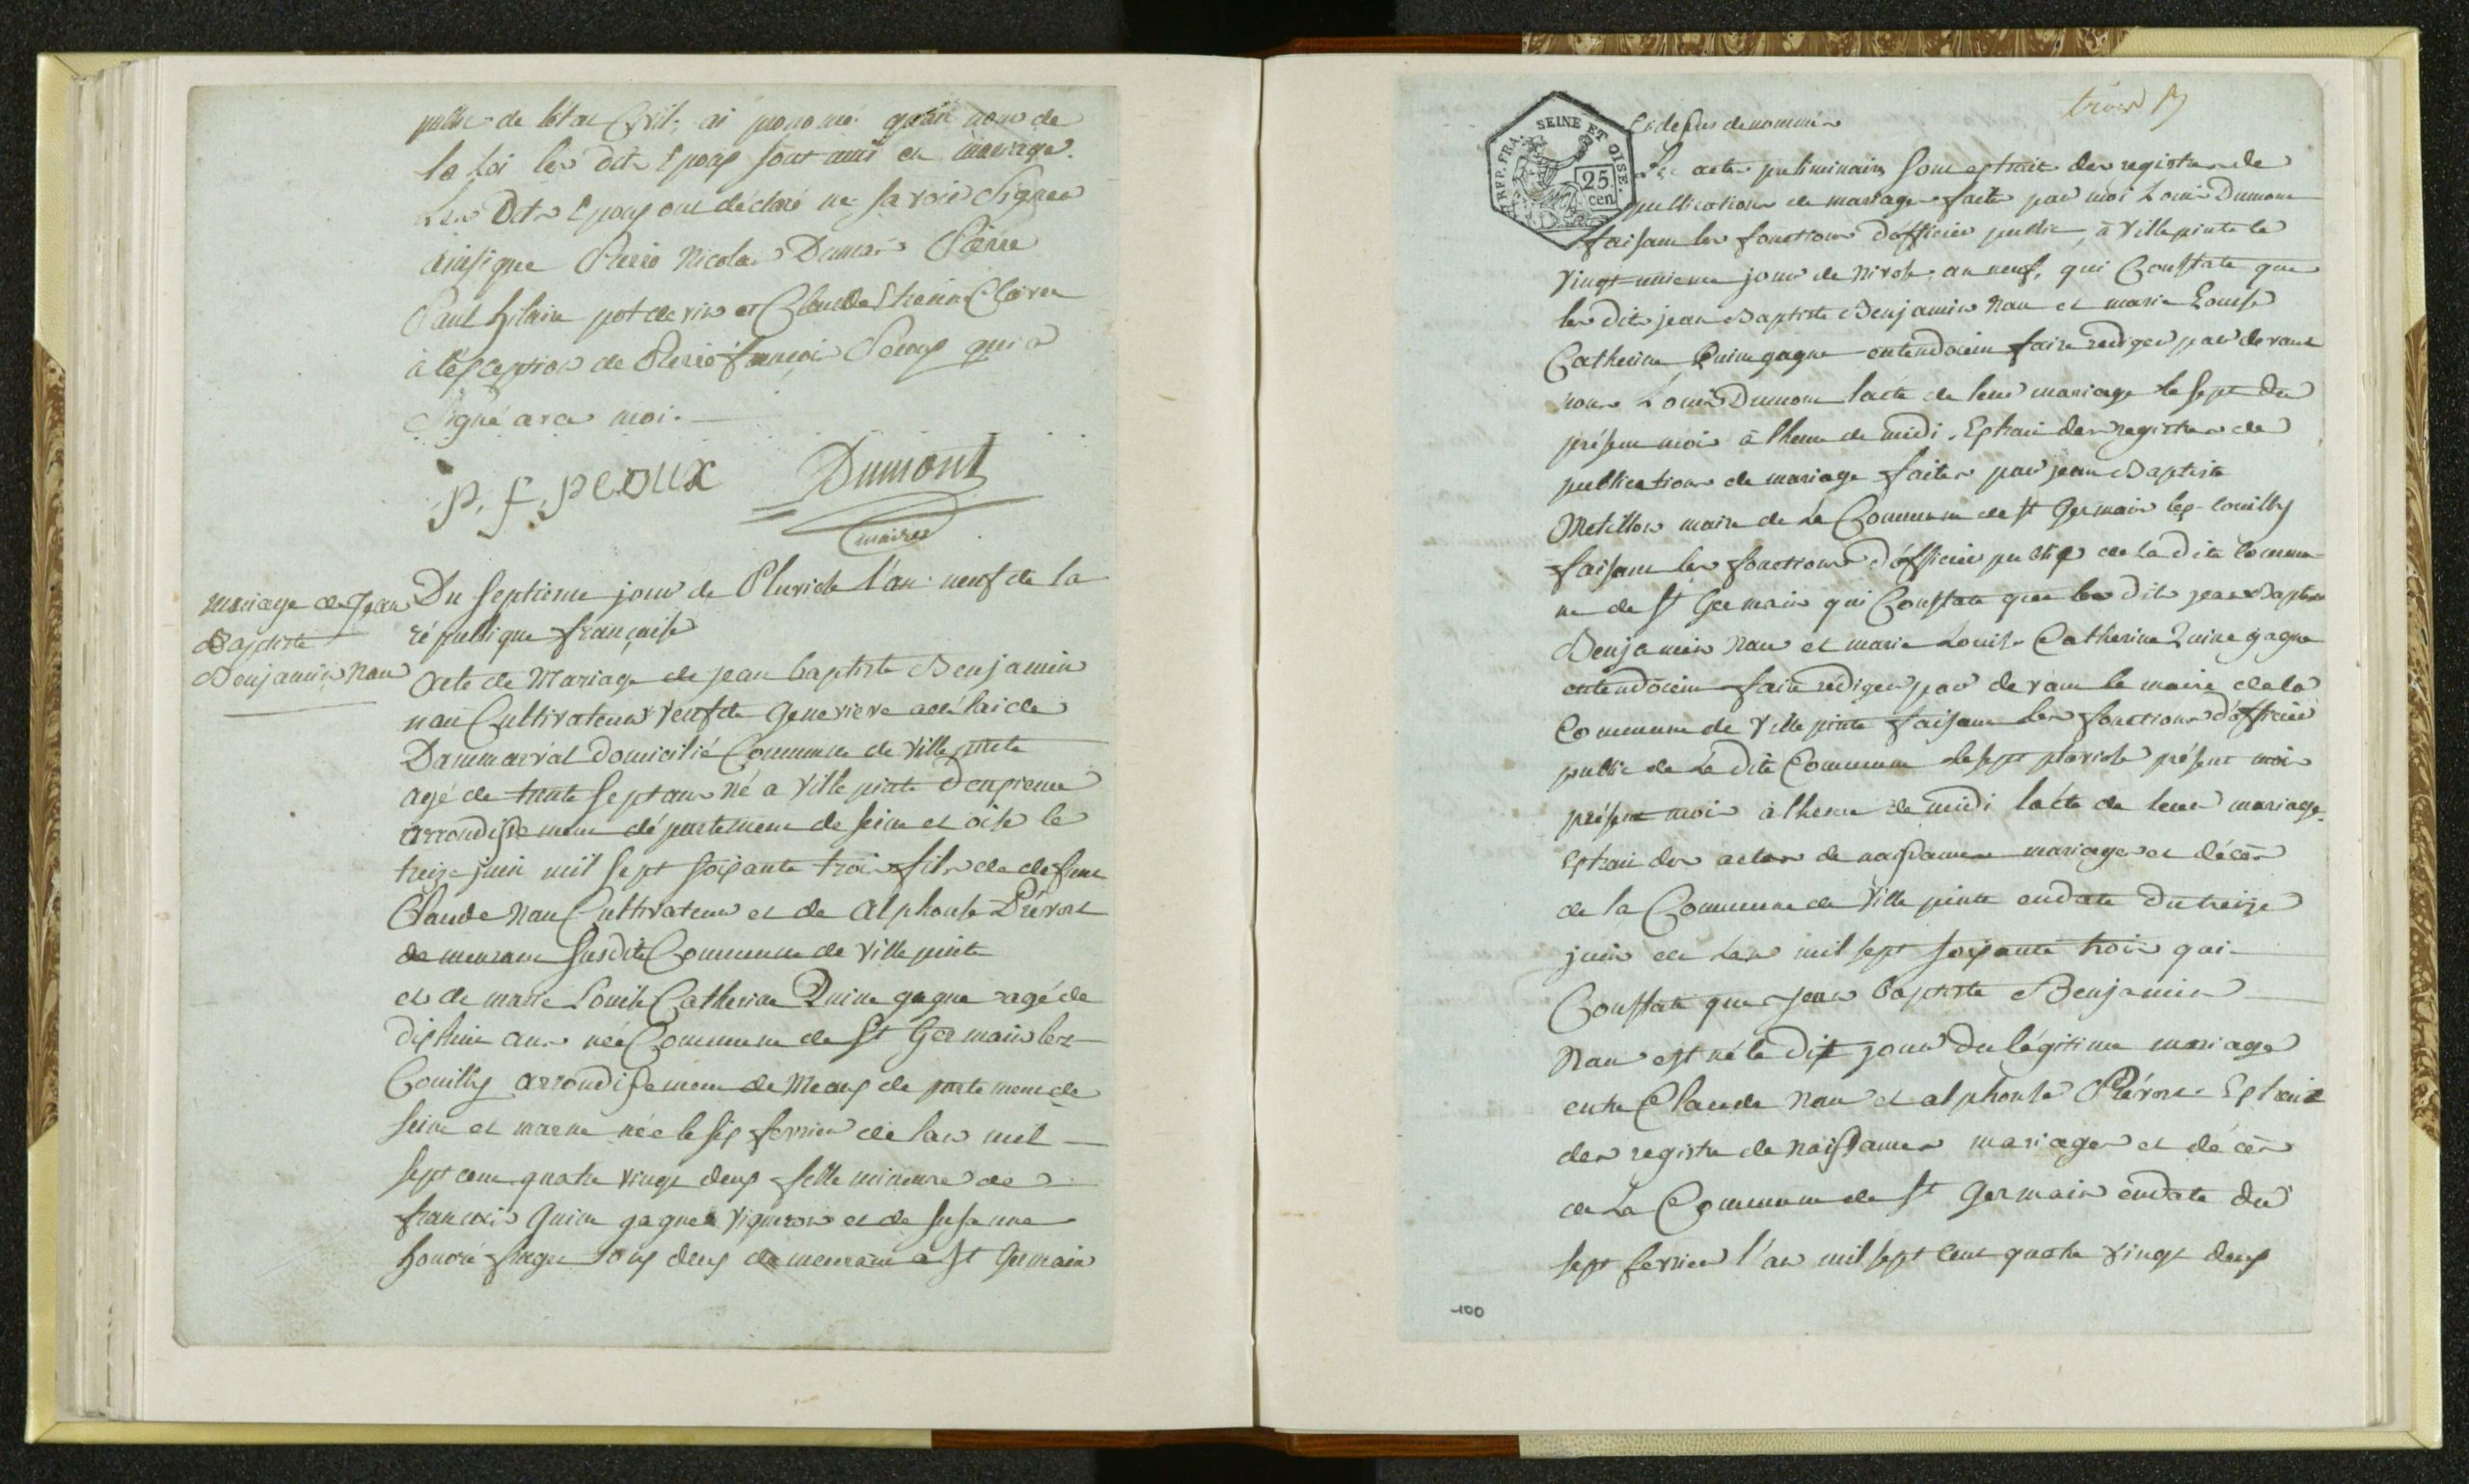 public de l'état Civil, ai prononcé qu'au nom de
la loi les dits Epoux sont unis en mariage.
Les Dits Epoux ont déclaré ne savoir Signer
ainsi que Pierre Nicolas Pierre
Paul hilaire potdevin et Claude
à l'exception de Pierre françois Peoux qui a
Signé avec moi.
p. f. peoux Dumont
maire
mariage de Jean
Baptiste
Benjamin Nau
Du Septieme jour de Pluviose l'an neuf de la
république française
Acte de Mariage de jean baptiste Benjamin
nau Cultivateur veuf de Genevieve adélaide
Dammarval domicilié Commune de Villepinte
agé de trente Sept ans né a Villepinte Deuxieme
arrondissement département de seine et oise le
treize juin mil sept soixante trois fils de defunt
Claude Nau Cultivateur et de alphonse Prévost
demeurant susdite Commune de Villepinte
et de marie Louise Catherine Quine gagne agé de
dixhuit ans née Commune de St Germain lez
Couilly arrondissement de Meaux departement de
seine et marne née le six fevrier de lan mil
sept cent quatre vingt deux fille mineure de
francois Quine gagne vigneron et de susanne
honoré tous deux demeurant a St Germain
25
cen
REP. FRA. SEINE ET OISE.
Cidessus denommés
Les actes preliminaires sont extrait des registres de
publications de mariage faite par moi Louis Dumont
faisant les fonctions d'officier public, à Villepinte le
vingt unieme jour de nivose an neuf, qui Constate que
les dits jean Baptiste Benjamin Nau et marie Louise
Catherine Quine gagne entendoient faire rediger par devant
nous Louis Dumont lacte de leur mariage le sept du
présent mois à l'heure de midi. Extrait des registres de
publications de mariage faites par jean Baptiste
Metillon maire de La Commune de St Germain lez-couilly
faisant les fonctions d'officier public de La dite commu-
ne de St Germain qui Constate que les dits jean Baptiste
Benjamin Nau et marie Louise Catherine Quine gagne
entendoient faire rédiger par devant le maire de la
Commune de Villepinte faisant les fonctions d'officier
public de La dite Commune le sept pluviose présent mois
présent mois à l'heure de midi lacte de leur mariage.
Extrait des actes de naissances mariages et décès
de la Commune de Villepinte en date du treize
juin de Lan mil sept soixante trois qui
Constate que jean baptiste Benjamin
Nau est né le dit jour du légitime mariage
entre Claude Nau et alphonse Prévost. Extrait
des registre de Naissances mariages et décès
de La Commune de St Germain en date du
sept fevrier l'an mil sept cent quatre vingt deux
100